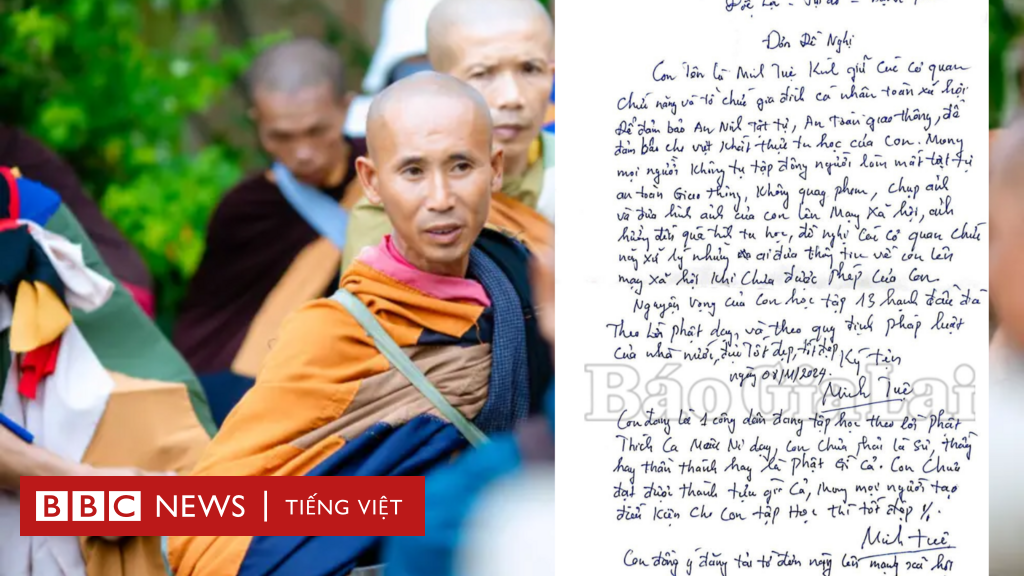 Độc lập - Tự do - Hạnh phúc
Đơn Đề Nghị
Con Tên là Minh Tuệ Kính gửi các cơ quan
chức năng và tổ chức gia đình cá nhân toàn xã hội
để đảm bảo An Ninh Trật tự, An Toàn giao thông, để
đảm bảo cho việc khất thực tu học của con. Mong
mọi người không tụ tập đông người làm mất trật tự
an toàn Giao thông, không quay phim, chụp ảnh
và đưa hình ảnh của con lên Mạng Xã hội, ảnh
hưởng đến quá trình tu học, đề nghị các cơ quan chức
năng xử lý những ai đưa thông tin về con lên
mạng xã hội khi chưa được phép của con.
Nguyện vọng của con học tập 13 hạnh đầu đà
Theo lời phật dạy và theo quy định pháp luật
của nhà nước, đều tốt đẹp, tốt đẹp Ký tên
ngày 08/11/2024.
Minh Tuệ
Báo Gia Lai
Con đang là 1 công dân đang tập học theo lời Phật
Thích Ca Mâu Ni dạy, con chưa phải là sư, thầy
hay thần thánh hay là phật gì cả. Con chưa
đạt được thành tựu gì cả, mong mọi người tạo
điều kiện cho con tập học thì tốt đẹp
Minh Tuệ
Con đồng ý đăng tải tờ đơn này lên mạng xã hội
BBC NEWS | TIẾNG VIỆT